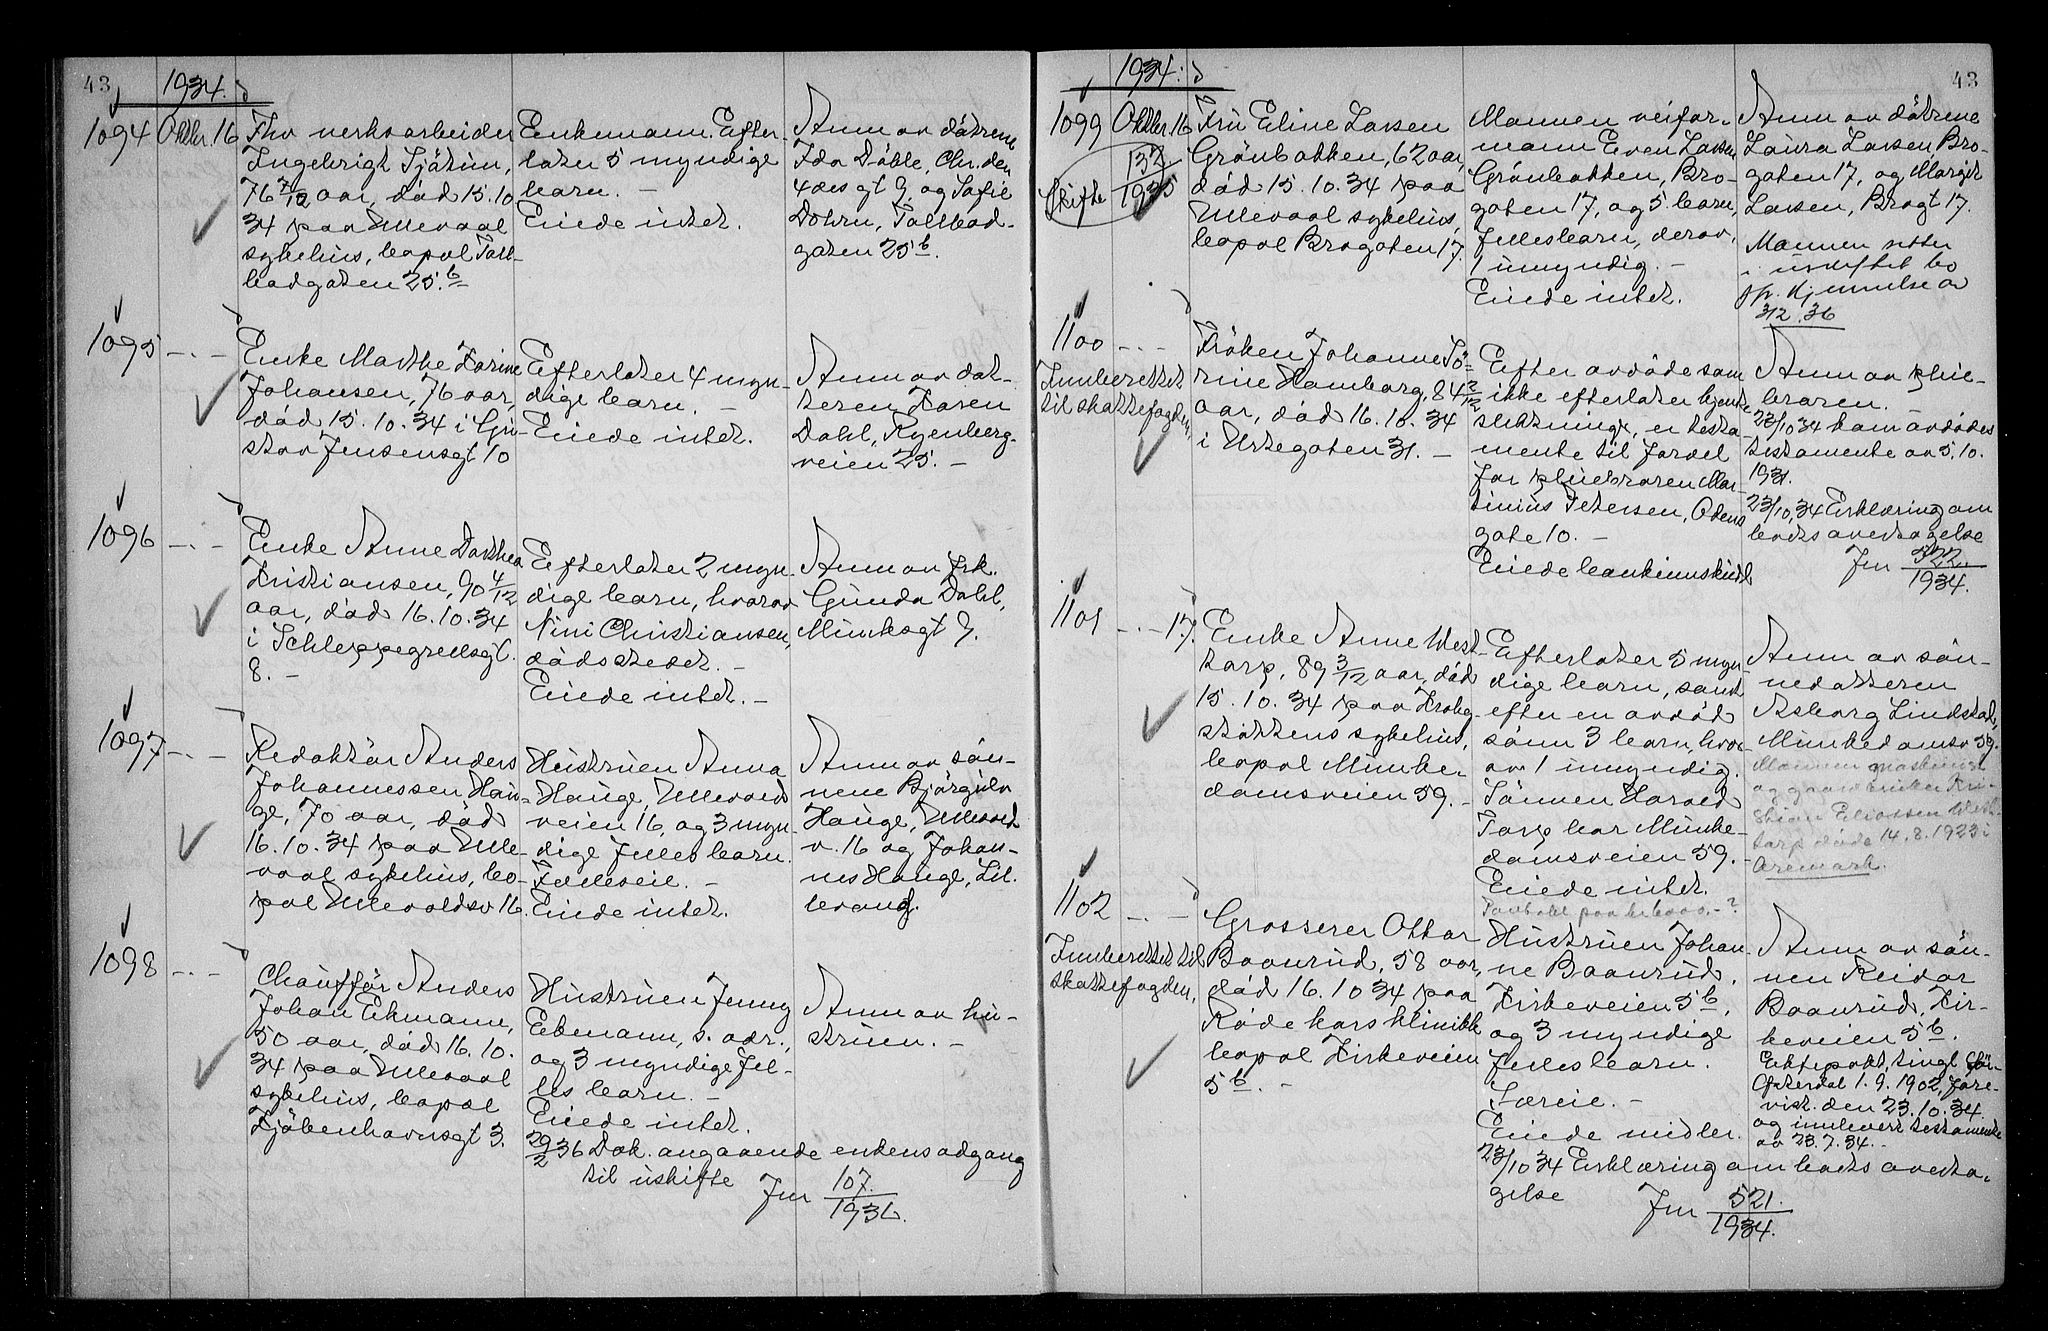 43
1934.
1094 Oktbr. 16
Fhv verksarbeider
Ingebrigt Sjåtun,
76 7/12 aar, död 15.10
34 paa Ullevaal
sykehus, bopæl Toll-
bodgaten 25b
Enkemann. Efter-
later 5 myndige
barn. -
Eiede intet.
Anm av dötrene
Ida Döhle, Chr. den
4des gt 9 og Sofie
Dohrn, Tollbod-
gaten 25b.
1095 - . -
Enke Marthe Karine
Johansen, 76 aar,
död 15.10.34 i Gu-
stav Jensensgt 10
Efterlater 4 myn-
dige barn. -
Eiede intet.
Anm av dat-
teren Karen
Dahl, Ryenberg-
veien 25. -
1096 - . -
Enke Anne Dorthea
Kristiansen, 90 4/12
aar, död 16.10.34
i Schleppegrellsgt.
8. -
Efterlater 2 myn-
dige barn, hvorav
Nini Christiansen,
dödsstedet. -
Eiede intet. -
Anm av frk.
Gunda Dahl,
Munksgt 9.
1097 - . -
Redaktör Anders
Johannessen Hau-
ge, 70 aar, död
16.10.34 paa Ulle-
vaal sykehus, bo-
pæl Ullevoldsv 16.
Hustruen Anna
Hauge, Ullevolds
veien 16, og 3 myn-
dige felles barn.
Felleseie. -
Eiede intet.
Anm av sön-
nene Björgulv
Hauge, Ullevold
v. 16 og Johan-
nes Hauge, Lil-
1098 - . -
Chauffør Anders
Johan Ekmann,
50 aar, död 16.10.
34 paa Ullevaal
sykehus, bopæl
Kjöbenhavnsgt 3.
Hustruen Jenny
Ekmann, s. adr.,
og 3 myndige fel-
les barn. -
Eiede intet.
Anm av hu-
struen. -
29/2 36 Dok. angaaende enkens adgang
til uskifte Jnr 107/1936.
43
1934.
1099 Oktbr. 16
Skifte 132/1935
Fru Eline Larsen
Grönbakken, 62 aar,
död 15.10.34 paa
Ullevaal sykehus,
bopæl Brogaten 17.
Mannen veifor-
mann Even Larsen
Grönbakken, Bro-
gaten 17, og 5 barn,
fellesbarn, derav
1 umyndig. -
Eiede intet.
Anm av dötrene
Laura Larsen Bro-
gaten 17, og Margit
Larsen, Brogt 17.
Mannen sitter
i uskiftet bo
1100 - . -
Innberettet
til skattefogden.
Fröken Johanne Sö-
rine Hamborg, 84 2/12
aar, död 16.10.34
i Urtegaten 31. -
Efter avdöde som
ikke efterlater kjente
slektninge, er testa-
mente til fordel
for pleiebroren Mar-
tinius Petersen, Odens
gate 10. -
Eiede bankinnskudd
Anm av pleie-
broren. -
23/10 34 kom avdödes
testamente av 5.10.
1931.
23/10.34 Erklæring om
boets overtagelse
Jnr 522/1934.
1101 - . - 17.
Enke Anne West-
torp, 89 3/12 aar, död
15.10.34 paa Krohg-
støttens sykehus,
bopæl Munke-
damsveien 59. -
Efterlater 5 myn
dige barn, samt
efter en avdöd
sönn 3 barn, hvor
av 1 umyndig.
Sönnen Harald
Torp bor Munke-
damsveien 59. -
Eiede intet.
Anm av sön-
nedatteren
Asborg Lindstad,
Munkedamsv 59.
Mannen maskinist
og gaardbruker Kri-
stian Eliassen West-
torp döde 14.8.1923 i
Aremark.
1102 - . -
Innberettet til
skattefogden.
Grosserer Ottar
Baanrud, 58 aar,
död 16.10 34 paa
Røde kors klinikk
bopæl Kirkeveien
5b. -
Hustruen Johan-
ne Baanrud,
Kirkeveien 5b,
og 3 myndige
fellesbarn.
Særeie. -
Eiede midler.
23/10 34 Erklæring om boets overta-
gelse Jnr 521/1934.
Anm av sön-
nen Reidar
Baanrud, Kir-
keveien 5b.
Ektepakt, tingl.
Østerdal 1.9.1902, fore-
vist den 23.10.34.
og innlevert testamente
av 23.7.34. -